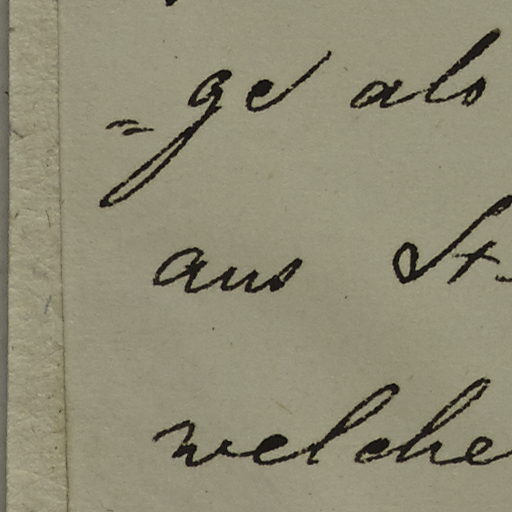 =ge als
aus St.
welche